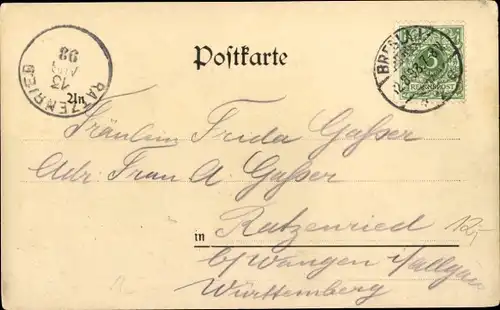 Postkarte
BRESLAU
REICHSPOST
RATZENRIED
13
98
An
Fräulein Frida Gasser
Adr. Frau A. Gasser
in Ratzenried
b/Wangen i/Allgäu
Württemberg
12,-